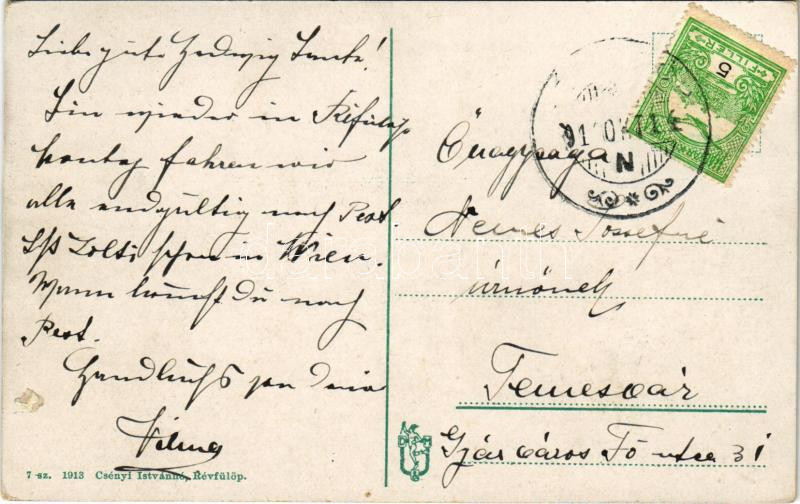 Liebe gute Hedwig Tante!
Bin wieder in Réfülöp
Montag fahren wir
alle endgültig nach Pest.
Ist Zolti schon in Wien.
Wann kommst Du nach
Pest.
Handkuss von deine
Vilma
7 sz. 1913 Csényi Istvánné, Révfülöp.
5
FILLER
N
Őnagysága
Nemes Józsefné
úrnőnek
Temesvár
Gyárváros Fő utca 31